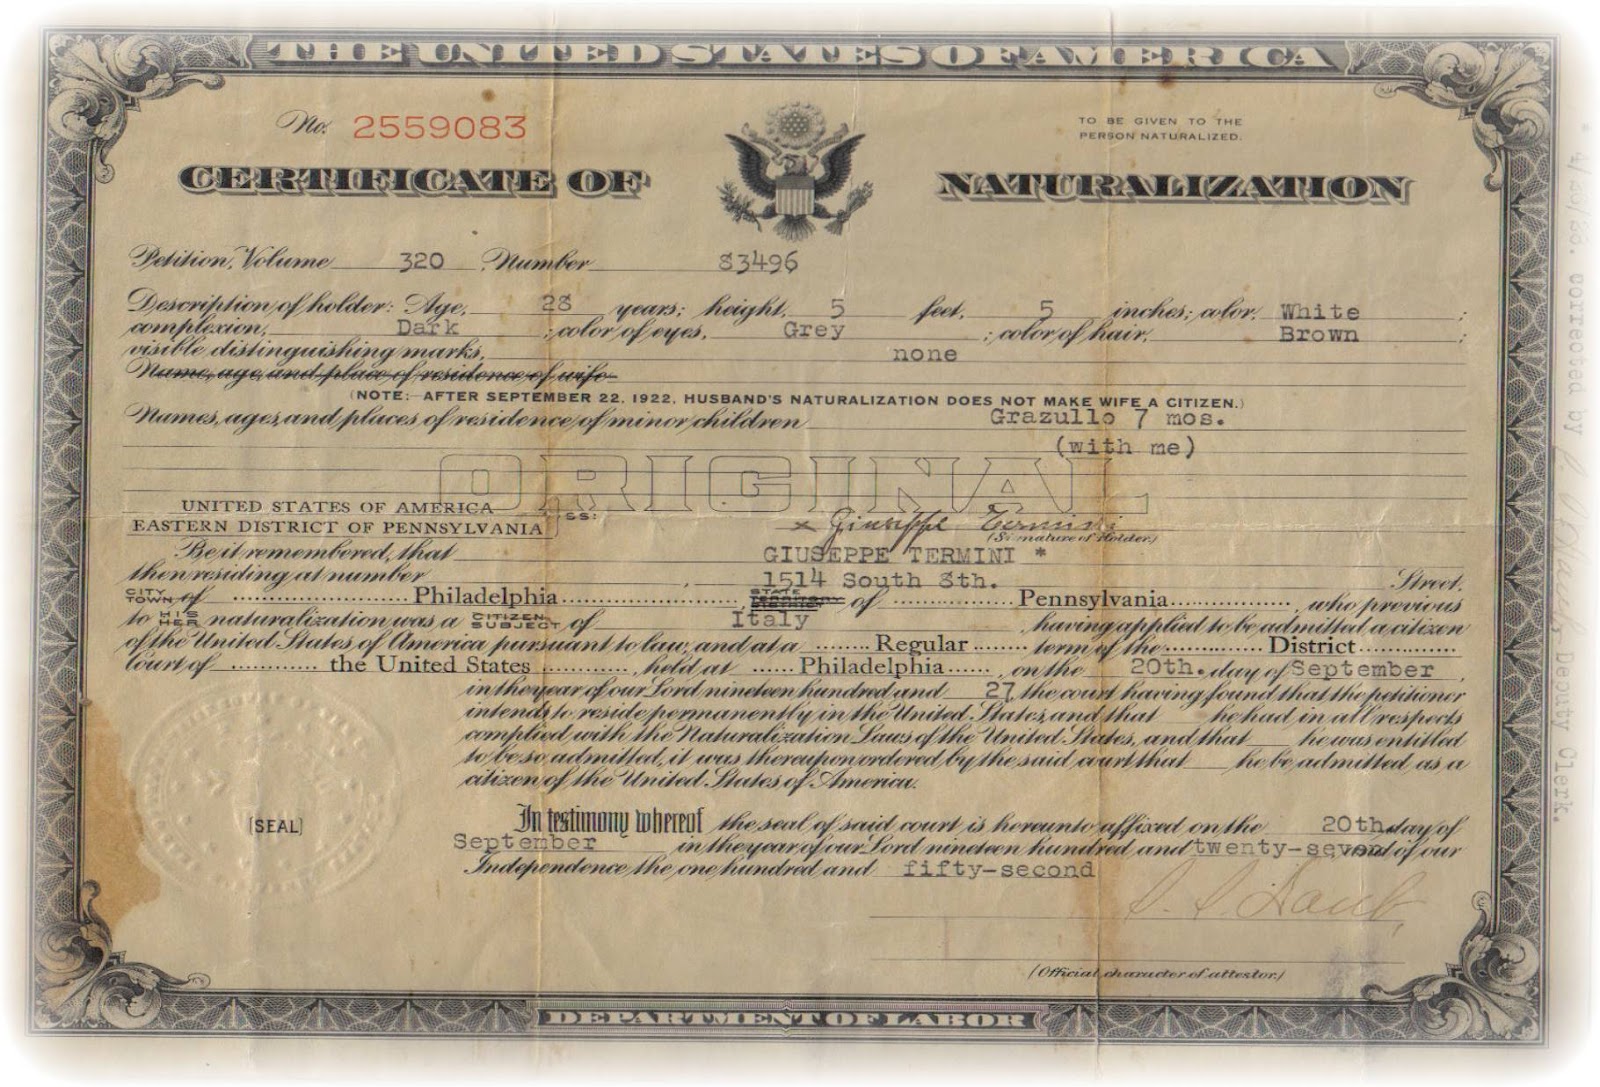 THE UNITED STATES OF AMERICA
No. 2559083
TO BE GIVEN TO THE
PERSON NATURALIZED.
CERTIFICATE OF NATURALIZATION
Petition, Volume 320 Number 83496
Description of holder: Age, 28 years; height, 5 feet, 5 inches; color, White ;
complexion, Dark ; color of eyes, Grey ; color of hair, Brown ;
visible distinguishing marks, none
Name, age, and place of residence of wife
(NOTE: AFTER SEPTEMBER 22, 1922, HUSBAND'S NATURALIZATION DOES NOT MAKE WIFE A CITIZEN.)
Names, ages, and places of residence of minor children Grazullo 7 mos.
(with me)
ORIGINAL
UNITED STATES OF AMERICA
EASTERN DISTRICT OF PENNSYLVANIA SS:
x Giuseppe Termini
(Signature of Holder.)
Be it remembered, that GIUSEPPE TERMINI *
then residing at number 1514 South 8th. Street,
CITY TOWN of Philadelphia, STATE of Pennsylvania, who previous
to HIS HER naturalization was a CITIZEN SUBJECT of Italy, having applied to be admitted a citizen
of the United States of America pursuant to law, and at a Regular term of the District
Court of the United States, held at Philadelphia, on the 20th. day of September,
in the year of our Lord nineteen hundred and 27, the court having found that the petitioner
intends to reside permanently in the United States, and that he had in all respects
complied with the Naturalization Laws of the United States, and that he was entitled
to be so admitted, it was thereupon ordered by the said court that he be admitted as a
citizen of the United States of America.
In testimony whereof the seal of said court is hereunto affixed on the 20th. day of
September in the year of our Lord nineteen hundred and twenty-seven and of our
Independence the one hundred and fifty-second
[SEAL]
(Official character of attestor.)
DEPARTMENT OF LABOR
corrected by
Deputy Clerk.